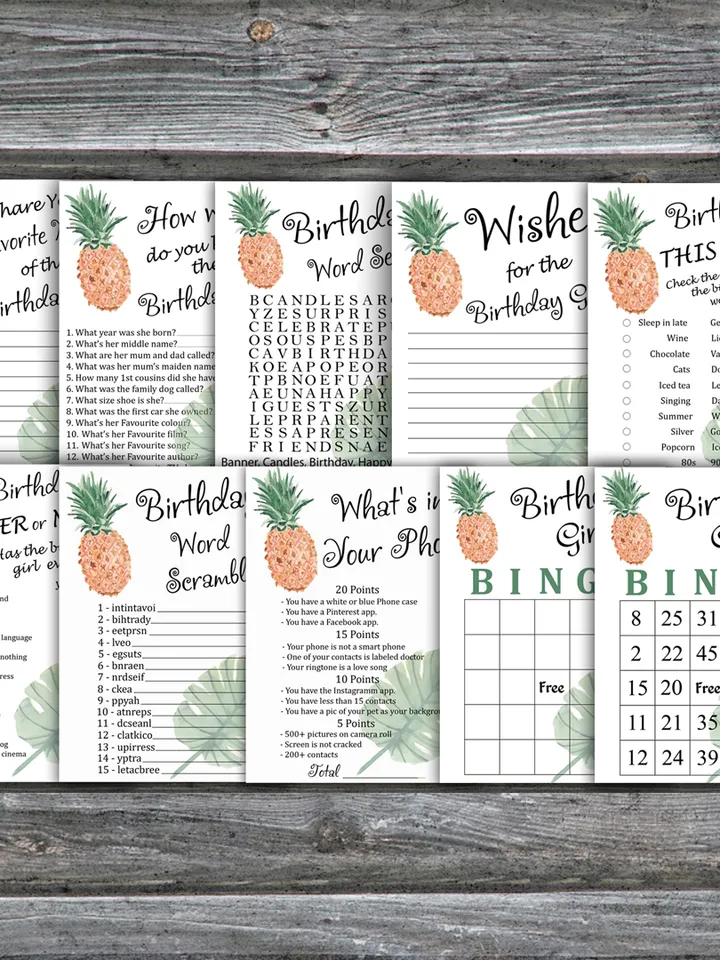 hare Y
avorite
of th
irthda
How w
do you
the
Birthda
1. What year was she born?
2. What's her middle name?
3. What are her mum and dad called?
4. What was her mum's maiden name
5. How many 1st cousins did she have
6. What was the family dog called?
7. What size shoe is she?
8. What was the first car she owned?
9. What's her Favourite colour?
10. What's her Favourite film?
11. What's her Favourite song?
12. What's her Favourite author?
Birthda
Word Se
BCANDLESAR
YZESURPRIS
CELEBRATEP
OSOUSPESBP
CAVBIRTHDA
KOEAPOPEOR
TPBNOEFUAT
AEUNAHAPPY
IGUESTSZUR
LEPRPARENT
ESSAPRESEN
FRIENDSNAE
Banner, Candles, Birthday, Happy
Wishe
for the
Birthday G
Birth
THIS
Check the
the bi
w
Sleep in late Ge
Wine Li
Chocolate Va
Cats Do
Iced tea Le
Singing Da
Summer W
Silver Go
Popcorn Ic
80s 90
Birthd
ER or N
Has the b
girl ev
nd
language
nothing
ress
og
cinema
Birthda
Word
Scrambl
1 - intintavoi
2 - bihtrady
3 - eetprsn
4 - lveo
5 - egsuts
6 - bnraen
7 - nrdseif
8 - ckea
9 - ppyah
10 - atnreps
11 - dcseanl
12 - clatkico
13 - upirress
14 - yptra
15 - letacbree
What's in
Your Pho
20 Points
- You have a white or blue Phone case
- You have a Pinterest app.
- You have a Facebook app.
15 Points
- Your phone is not a smart phone
- One of your contacts is labeled doctor
- Your ringtone is a love song
10 Points
- You have the Instagramm app.
- You have less than 15 contacts
- You have a pic of your pet as your backgrou
5 Points
- 500+ pictures on camera roll
- Screen is not cracked
- 200+ contacts
Total
Birth
Gir
BING
Free
Bir
G
BIN
8 25 31
2 22 45
15 20 Free
11 21 35
12 24 39